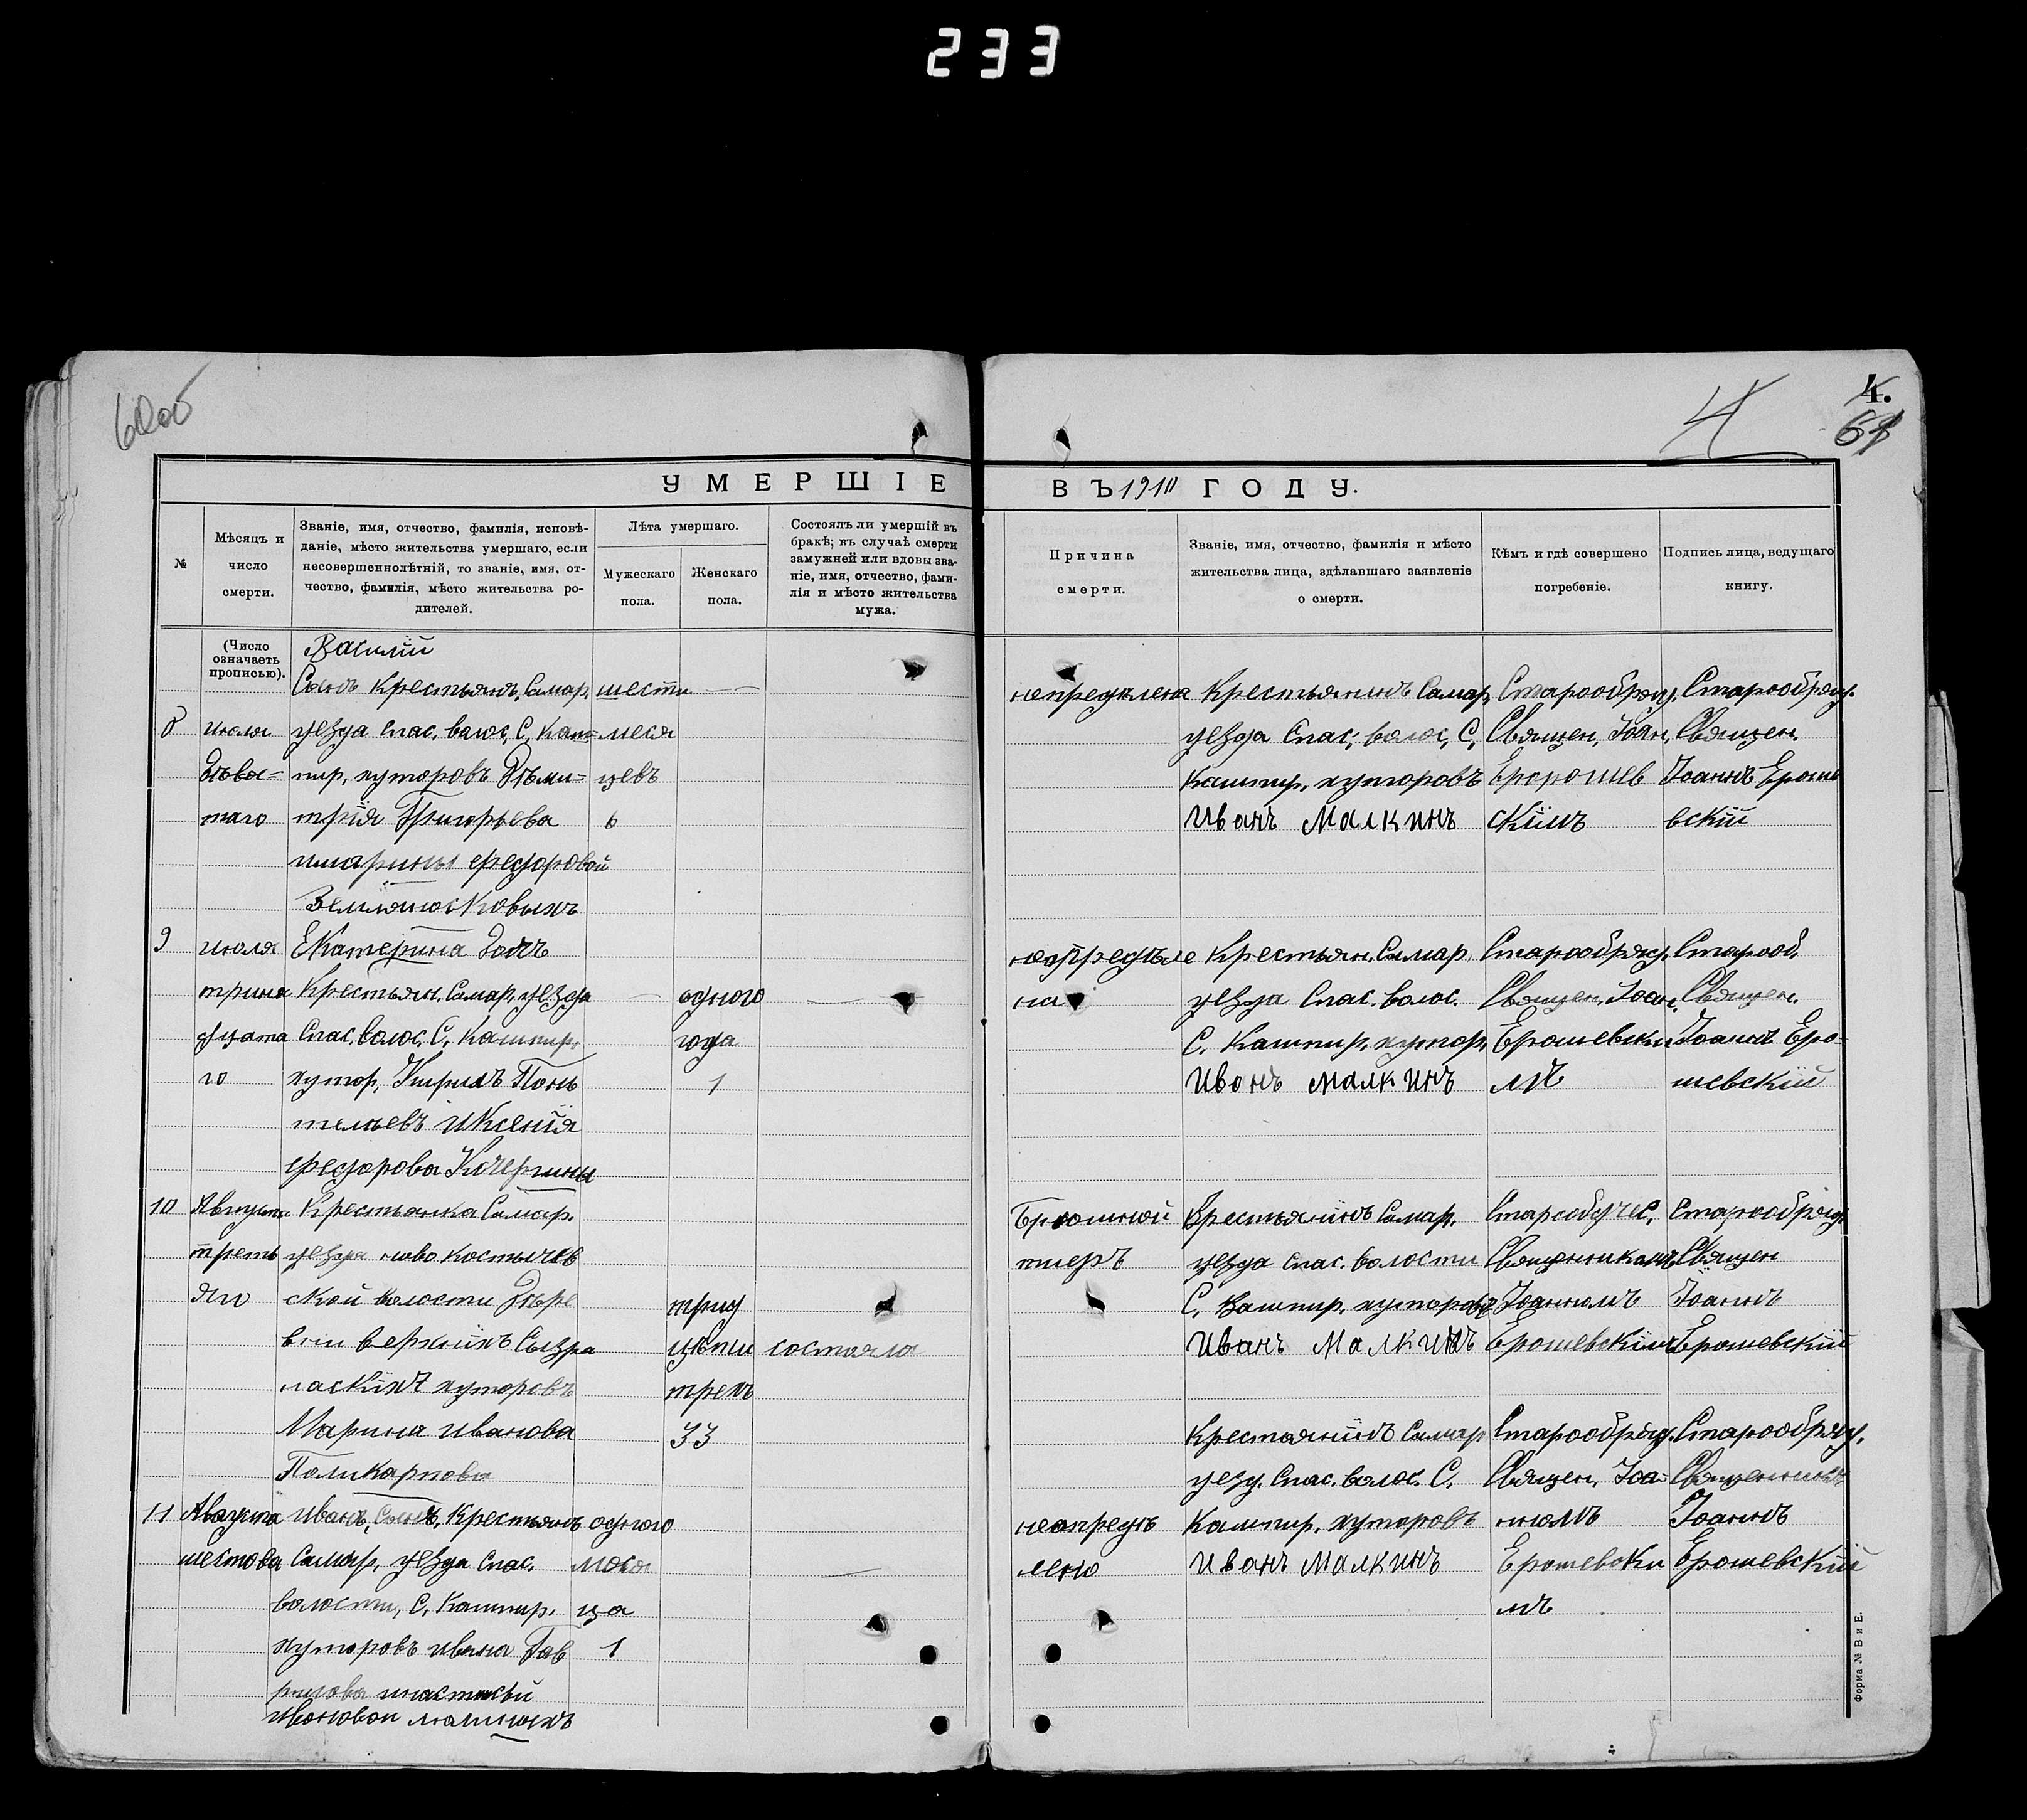 233
60об
4
4.
61
УМЕРШІЕ ВЪ 1910 ГОДУ.
№
Мѣсяцъ и
число
смерти.
Званіе, имя, отчество, фамилія, исповѣ-
даніе, мѣсто жительства умершаго, если
несовершеннолѣтній, то званіе, имя, от-
чество, фамилія, мѣсто жительства ро-
дителей.
Лѣта умершаго.
Мужескаго
пола.
Женскаго
пола.
Состоялъ ли умершій въ
бракѣ; въ случаѣ смерти
замужней или вдовы зва-
ніе, имя, отчество, фами-
лія и мѣсто жительства
мужа.
Причина
смерти.
Званіе, имя, отчество, фамилія и мѣсто
жительства лица, здѣлавшаго заявленіе
о смерти.
Кѣмъ и гдѣ совершено
погребеніе.
Подпись лица, ведущаго
книгу.
(Число
означаетъ
прописью).
8
июля
таго
Василій
Сынъ Крестьянъ, Самар,
уезда Спас. волос, С, Каш=
пир, хуторовъ Дьми=
трія Григорьева
имарины федоровой
Земляносковыхъ
шести
меся
цевъ
6
непределена
Крестьянинъ Самар,
уезда Спас, волос, С,
Кашпир, хуторовъ
Иванъ Малкинъ
Старообряд,
Священ, Іоан,
скимъ
Старообряд.
Священ.
Іоаннъ Ерош
вскій
9
июля
трина
дцата
го
Екатерина дочь
Крестьян. Самар, уезда
Спас, волос, С, Кашпир,
хутор,
тельевъ и Ксенія
федорова Кочергины
одного
года
1
неопределе
на
Крестьян, Самар,
уезда Спас. волос.
С. Кашпир, хутор,
Иванъ Малкинъ
Старообряд,
Священ, Іоан,
Ерошевски
мъ
Старооб,
Священ.
Іоаннъ Еро-
шевскій
10
Августа
треть
яго
Крестьянка Самар.
уезда ново Костычев
ской волости Дере
вни верхнихъ Сызра
ласкихъ хуторовъ
Марина Иванова
Поликарпова
трид
цати
трехъ
33
состояла
Брюшной
тиеръ
Крестьянинъ Самар,
уезда Спас. волости
С, Кашпир, хуторовъ
Иванъ Малкинъ
Священникамъ
Іоанномъ
Ерошевскимъ
Старообряд
Священ
Іоаннъ
Ерошевскій
11
Августа
шестова
Иванъ, Сынъ, Крестьянъ
Самар, уезда Спас.
волости, С, Кашпир.
хуторовъ Ивана Гав
рилова инастасьи
Ивановой малкиныхъ
одного
меся
ца
1
неопреде
лено
Крестьянинъ Самар
уезд, Спас. волос. С.
Кашпир, хуторовъ
Иванъ Малкинъ
Старообряд,
Священ, Іоа-
нномъ
Ерошевски
мъ
Старообряд,
Священникъ
Іоаннъ
Ерошевскій
Форма № В и Е.